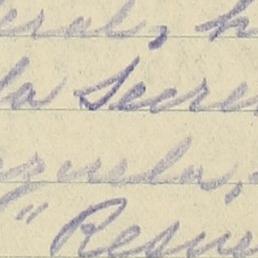 eral, h
la Secre
zuela,
" Resue